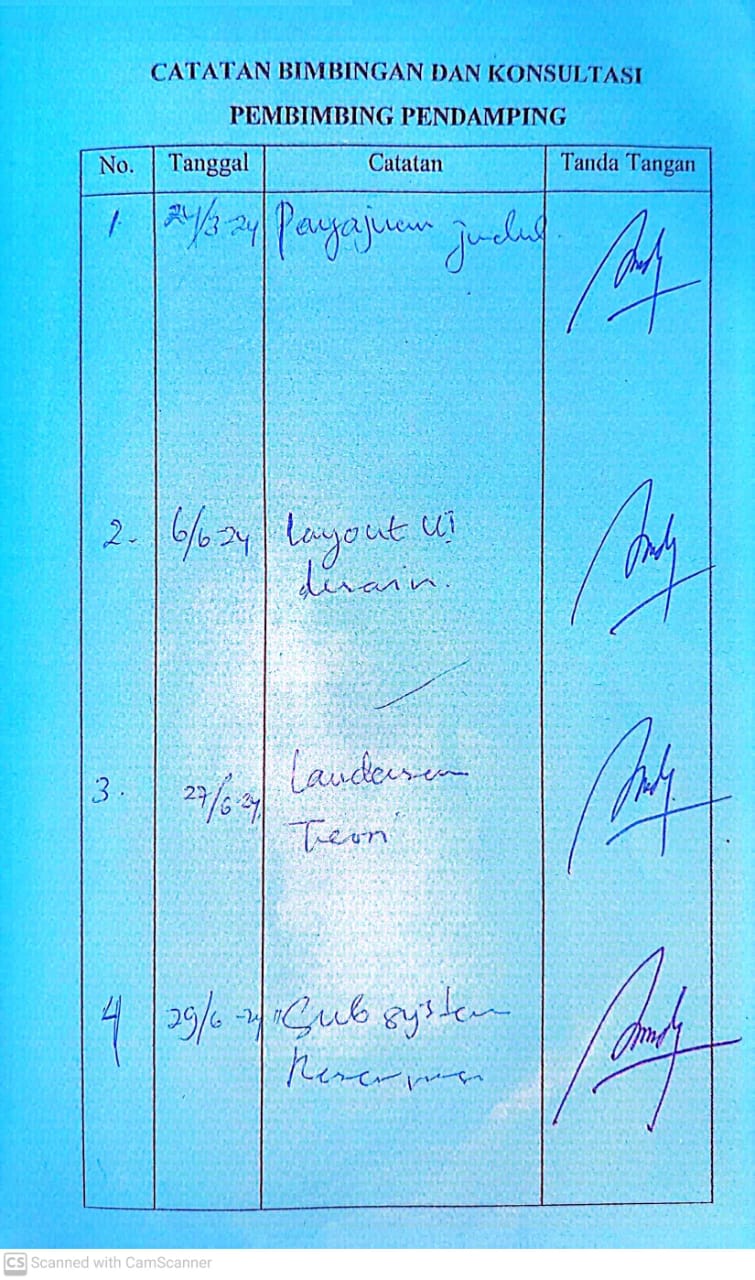 CATATAN BIMBINGAN DAN KONSULTASI
PEMBIMBING PENDAMPING
No. Tanggal Catatan Tanda Tangan
1. 24/3-24 Pengajuan judul.
2. 6/6-24 Layout UI
desain.
3. 27/6-24 Landasan
Teori
4 29/6-24 "Sub system
CS Scanned with CamScanner